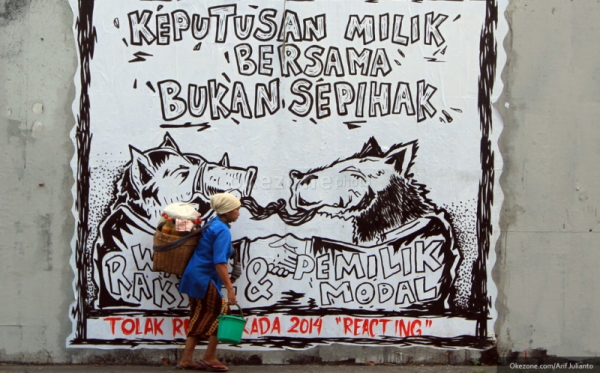 KEPUTUSAN MILIK
BERSAMA
BUKAN SEPIHAK
& PEMILIK
MODAL
TOLAK KADA 2014 "REACTING"
Okezone.com/Arif Julianto